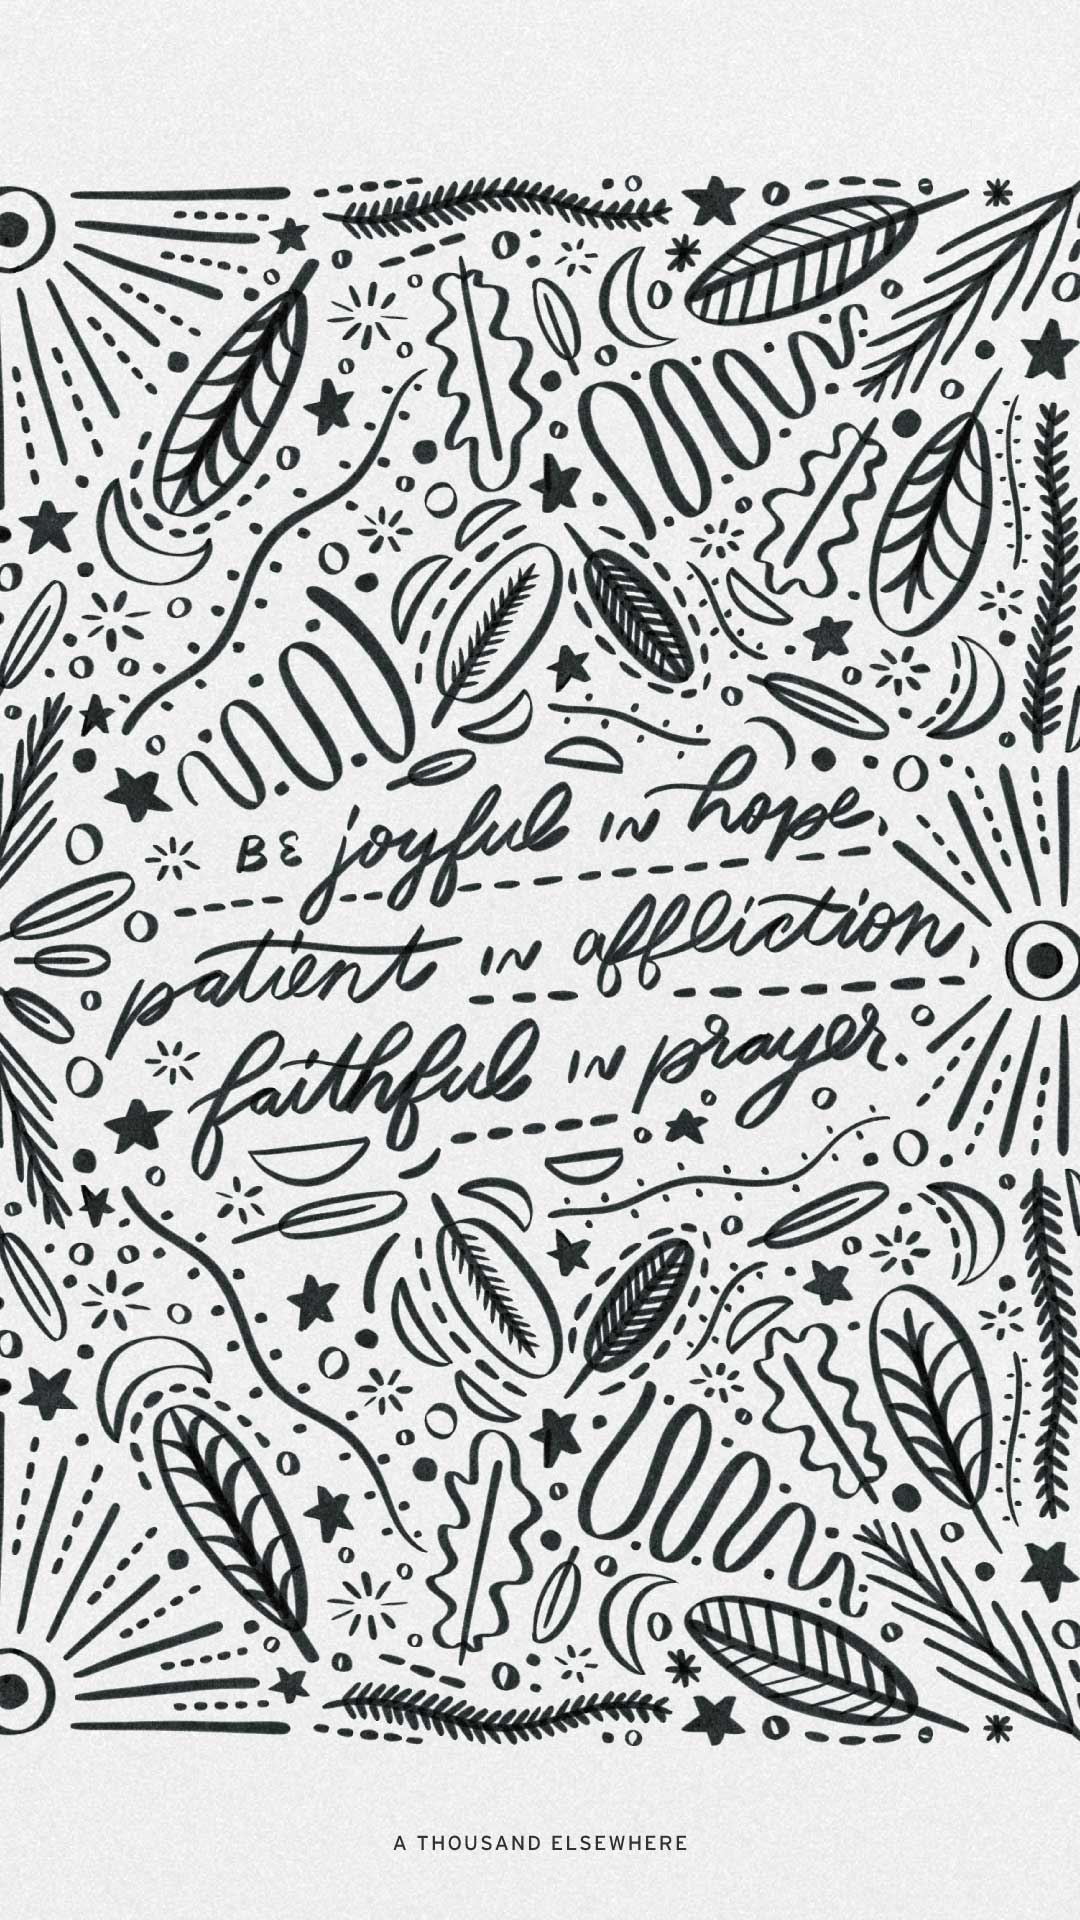 BE joyful IN hope,
patient IN affliction,
faithful IN prayer.
A THOUSAND ELSEWHERE